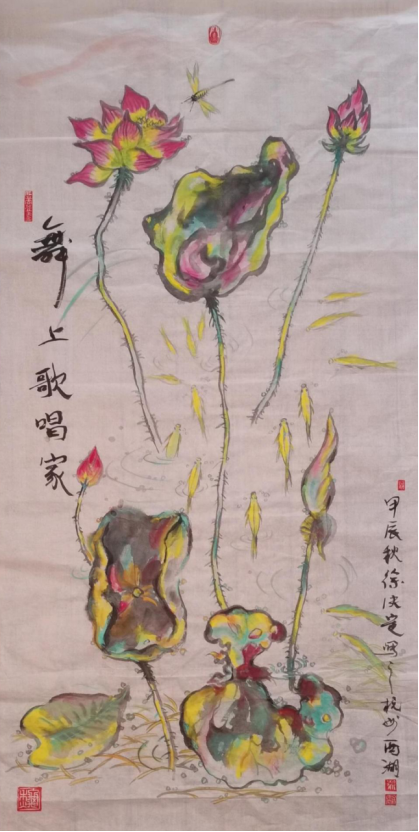 舞上歌唱家
甲辰秋徐法定写之杭州西湖